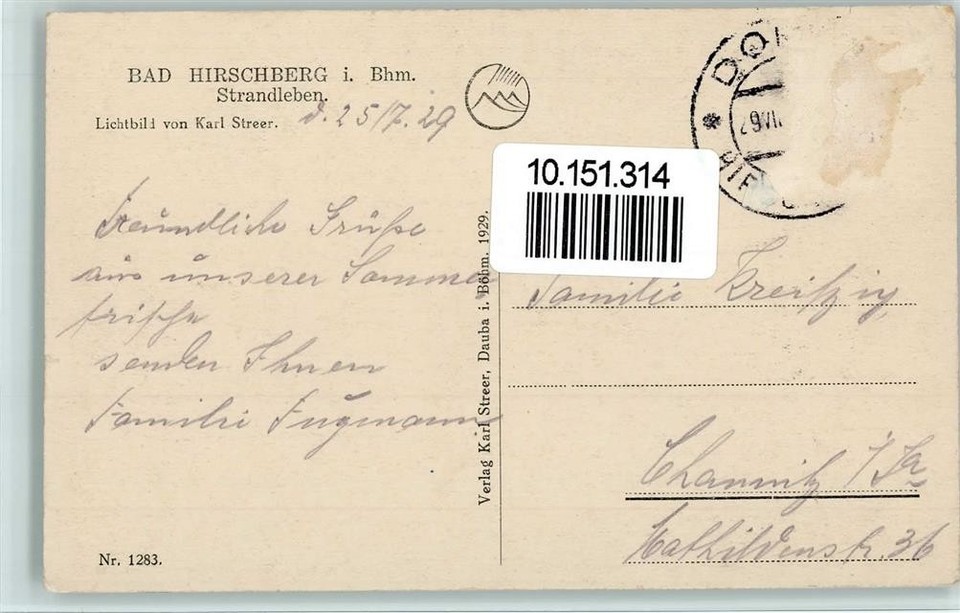 BAD HIRSCHBERG i. Bhm.
Strandleben.
Lichtbild von Karl Streer.
d. 25/7. 29
Freundliche Grüße
aus unserer Sommer
frische
senden Ihnen
Familie Fugmann
Nr. 1283.
Verlag Karl Streer, Dauba i. Böhm. 1929.
10.151.314
DOK
Familie Kreißig
Chemnitz i/Sa
Mathildenstr. 36